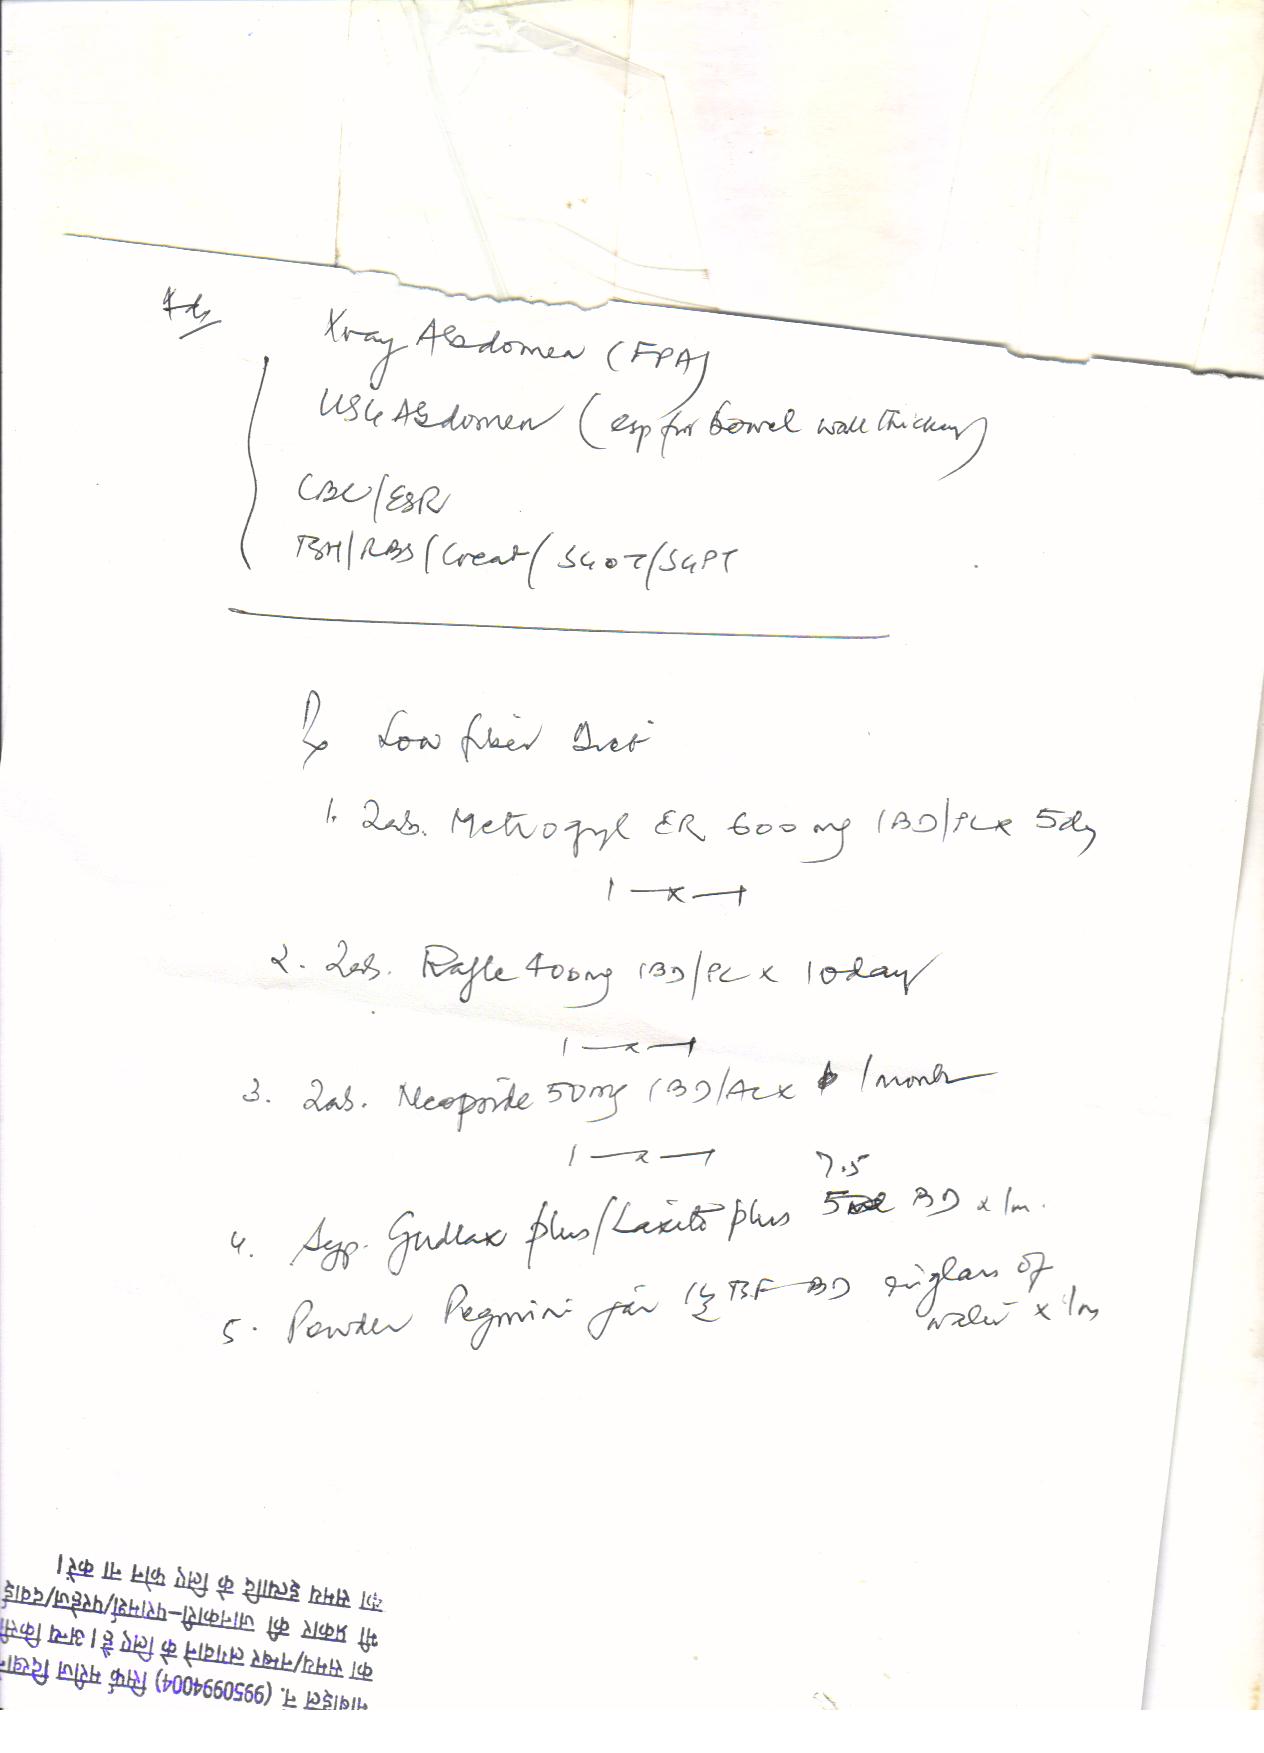 Xray Abdomen (FPA)
USG Abdomen (esp for bowel wall thickening)
CBC/ESR
TSH/RBS/Creat/SGOT/SGPT
Rx Low fiber Diet
1. Tab. Metrogyl ER 600mg 1BD/PC x 5dy
1 —x— 1
2. Tab. 400mg 1BD/PC x 10day
1 —x— 1
3. Tab. 50mg 1BD/AC x 1month
1 —x— 1
7.5
4. Syp. Gudlax plus/Laxito plus BD x 1m.
5. Powder Pegmini jar BD in glass of
water x 1m
मोबाईल नं. (9950994004) सिर्फ मरीज
का समय/नम्बर लगवाने के लिए है। अन्य किसी
भी प्रकार की जानकारी-परामर्श/परहेज/दवाई
का समय इत्यादि के लिए फोन ना करें।